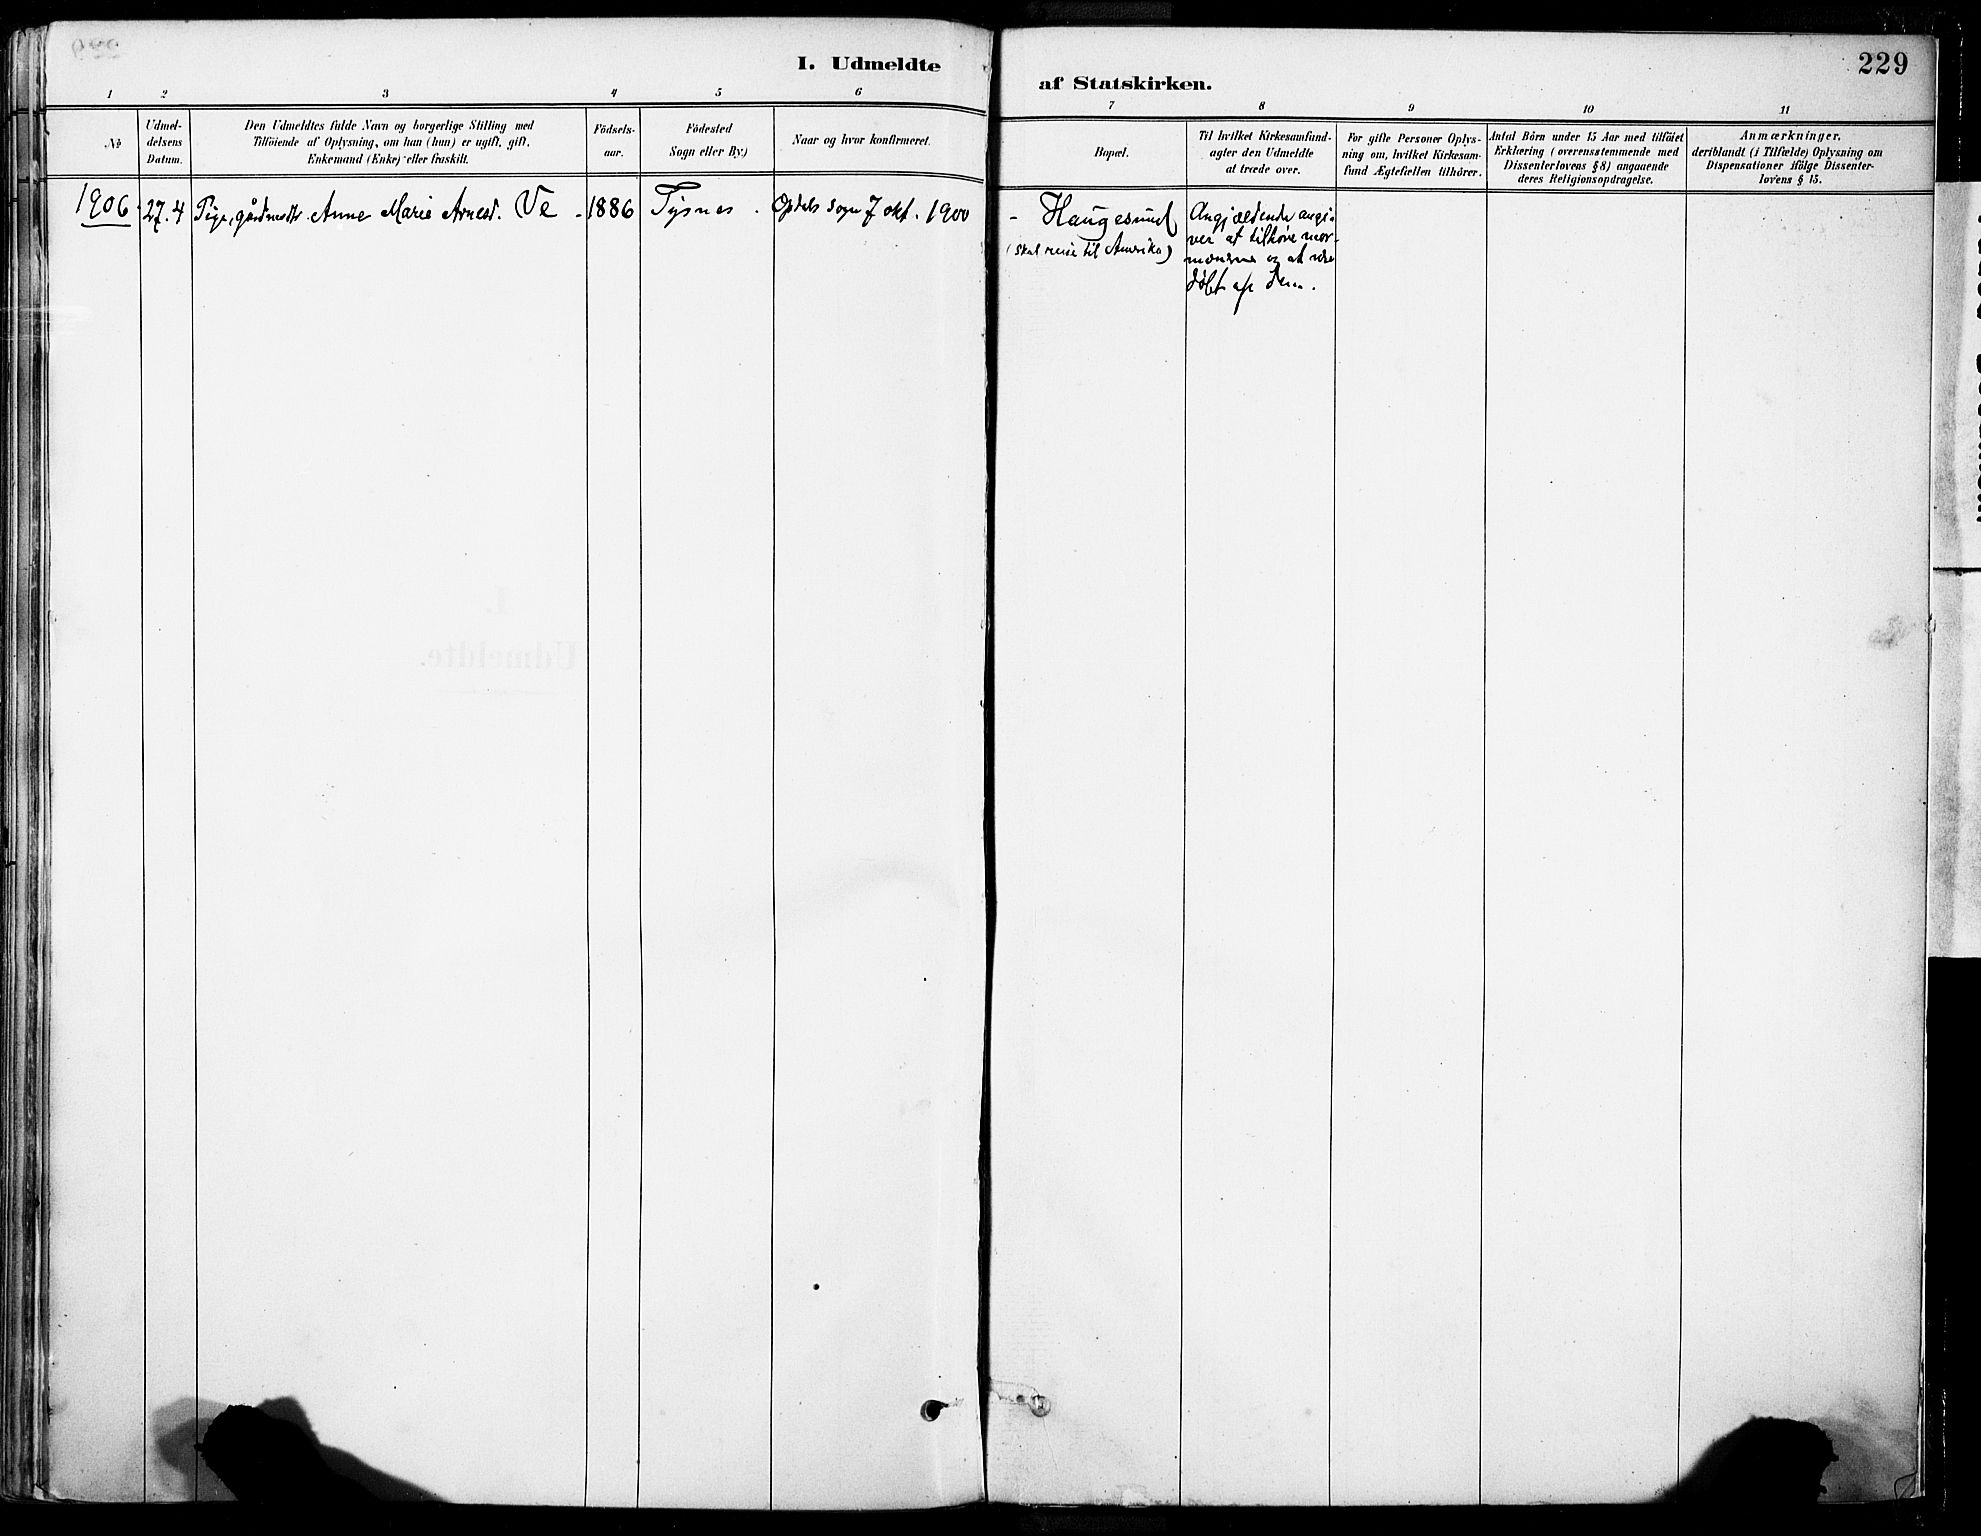 I. Udmeldte
af Statskirken.
229
1 2 3 4 5 6
7 8 9 10 11
№
Udmel-
delsens
Datum.
Den Udmeldtes fulde Navn og borgerlige Stilling med
Tilföiende af Oplysning, om han (hun) er ugift, gift,
Enkemand (Enke) eller fraskilt.
Födsels-
aar.
Födested
Sogn eller By.)
Naar og hvor konfirmeret.
Bopæl.
Til hvilket Kirkesamfund
agter den Udmeldte
at træde over.
For gifte Personer Oplys-
ning om, hvilket Kirkesam-
fund Ægtefællen tilhörer.
Antal Börn under 15 Aar med tilföiet
Erklæring (overensstemmende med
Dissenterlovens § 8) angaaende
deres Religionsopdragelse.
Anmærkninger.
deriblandt (i Tilfælde) Oplysning om
Dispensationer ifölge Dissenter-
lovens § 15.
1906
27.4
Pige, Anne Marie Arnesd. Ve
1886
Tysnes
Opdals Sogn 7 okt. 1900
- Haugesund
(skal reise til Amerika)
Angjældende angi-
ver at tilhøre mor-
monerne og at være
døbt af dem.
I.
Udmeldte.